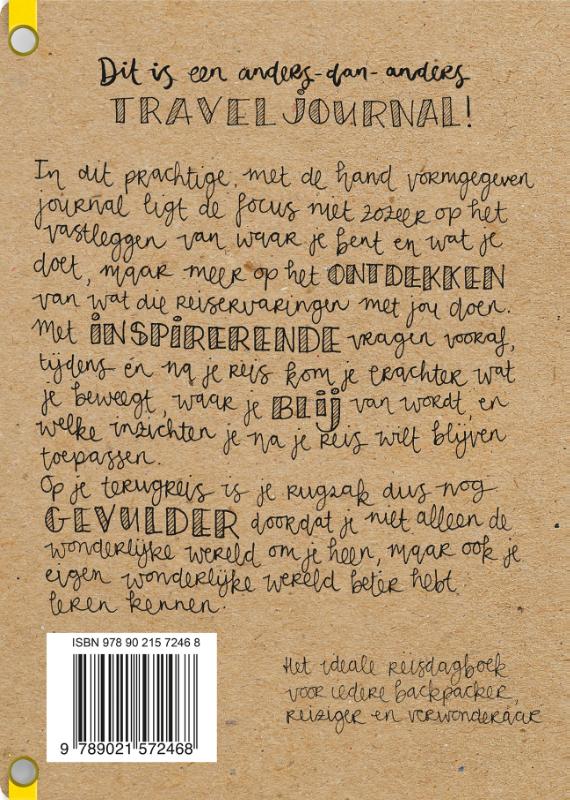 Dit is een anders-dan-anders
TRAVELJOURNAL!
In dit prachtige, met de hand vormgegeven
journal ligt de focus niet zozeer op het
vastleggen van waar je bent en wat je
doet, maar meer op het ONTDEKKEN
van wat die reiservaringen met jou doen.
Met INSPIRERENDE vragen vooraf,
tijdens én na je reis kom je erachter wat
je beweegt, waar je BLIJ van wordt, en
welke inzichten je na je reis wilt blijven
toepassen.
Op je terugreis is je rugzak dus nog
GEVULDER doordat je niet alleen de
wonderlijke wereld om je heen, maar ook je
eigen wonderlijke wereld beter hebt
leren kennen.
ISBN 978 90 215 7246 8
9 789021 572468
Het ideale reisdagboek
voor iedere backpacker,
reiziger en verwonderaar